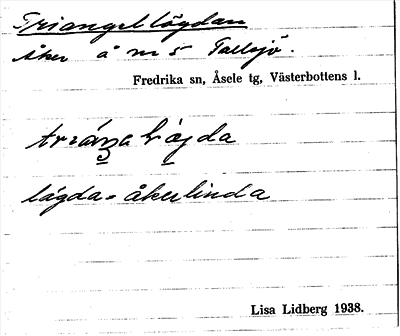 Triangellägdan
Åker å nr 5 Tallsjö.
Fredrika sn, Åsele tg, Västerbottens l.
lägda = åkerlinda
Lisa Lidberg 1938.